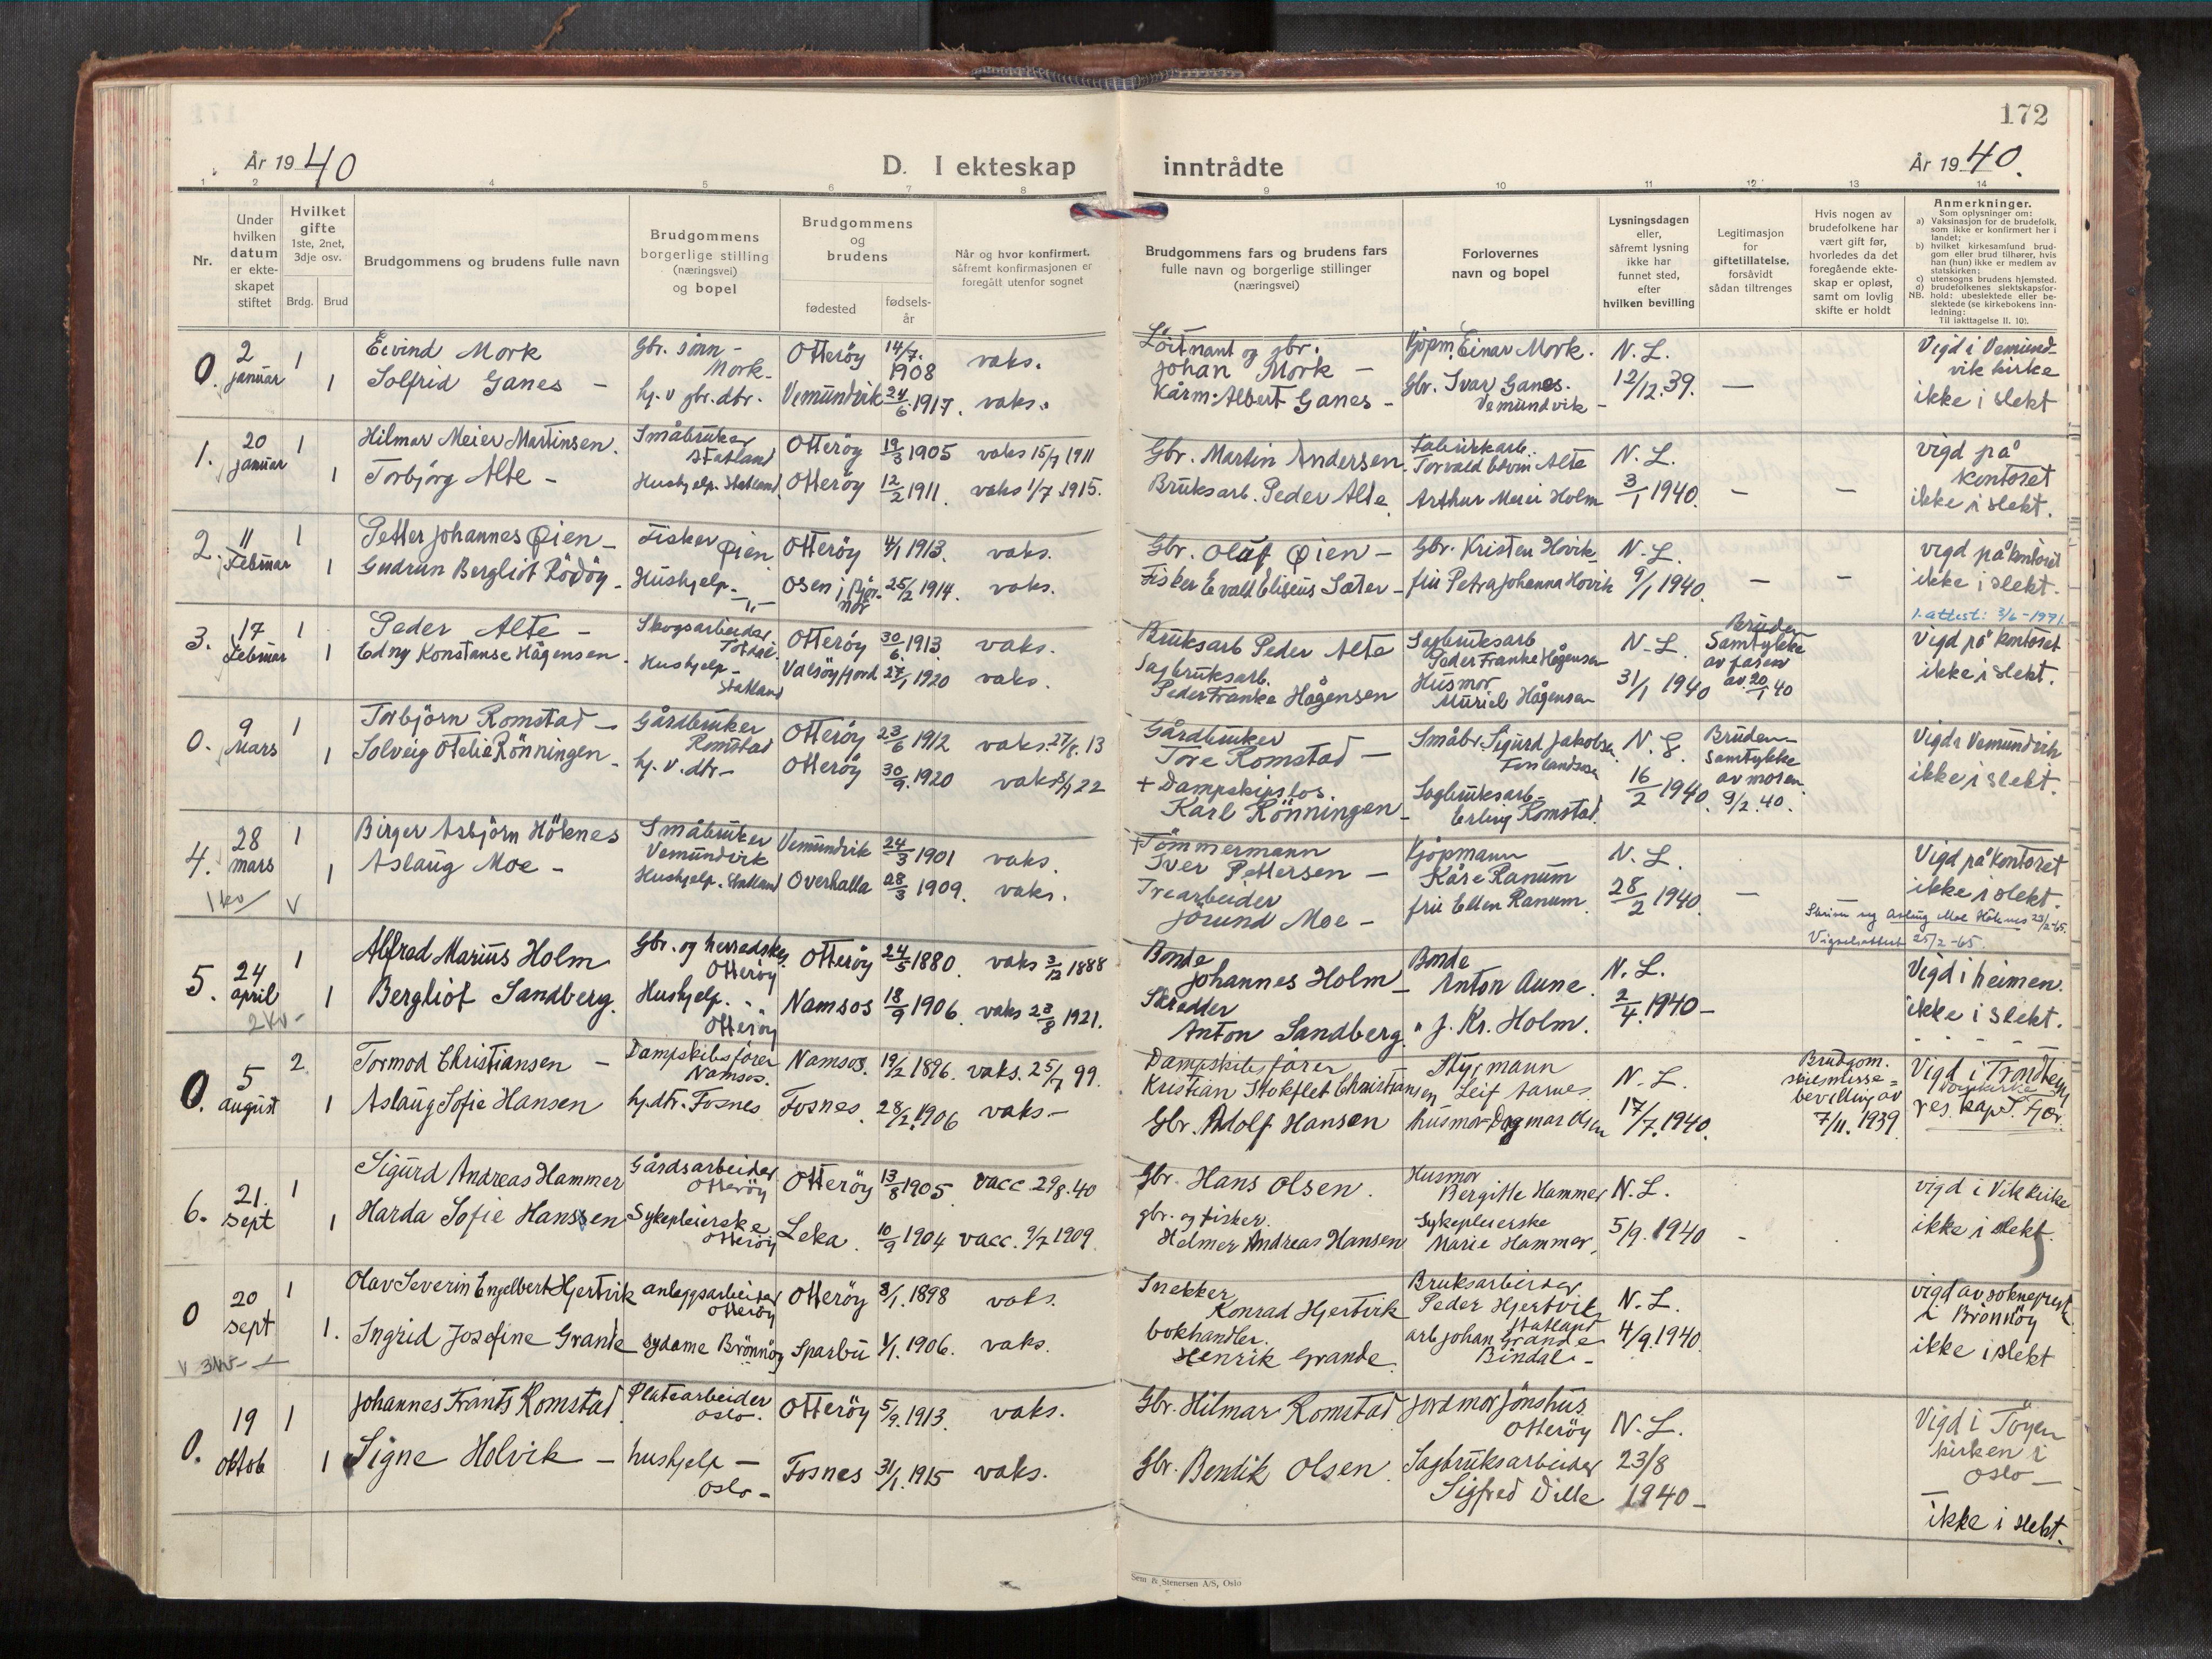 172
År 1940
D. I ekteskap inntrådte
År 1940.
1 2 4 5 6 7 8 9 10 11 12 13 14
Nr.
Under hvilken datum er ekteskapet stiftet
Hvilket gifte
1ste, 2net, 3dje osv.
Brdg. Brud
Brudgommens og brudens fulle navn
Brudgommens borgerlige stilling
(næringsvei)
og bopel
Brudgommens og brudens
fødested
fødsels-år
Når og hvor konfirmert,
såfremt konfirmasjonen er
foregått utenfor sognet
Brudgommens fars og brudens fars
fulle navn og borgerlige stillinger
(næringsvei)
Forlovernes
navn og bopel
Lysningsdagen
eller,
såfremt lysning
ikke har
funnet sted,
efter
hvilken bevilling
Legitimasjon
for
giftetillatelse,
forsåvidt
sådan tiltrenges
Hvis nogen av
brudefolkene har
vært gift før,
hvorledes da det
foregående ekte-
skap er opløst,
samt om lovlig
skifte er holdt
Anmerkninger.
Som oplysninger om:
a) Vaksinasjon for de brudefolk,
som ikke er konfirmert her i
landet;
b) hvilket kirkesamfund brud-
gom eller brud tilhører, hvis
han (hun) ikke er medlem av
statskirken;
c) utensogns brudens hjemsted.
d) brudefolkenes slektskapsfor-
NB. hold: ubeslektede eller be-
slektede (se kirkebokens inn-
ledning:
Til iakttagelse II. 10).
0. 2 januar 1 Eivind Mork Gbr. sønn - Mork - Otterøy 14/7. 1908 vaks. Löitnant og gbr. Johan Mork - Kjøpm. Einar Mork. N. L. Vigd i Vemund-
vik kirke
1 Solfrid Ganes - hj. v gbr. dtr. Vemundvik 24/6 1917. vaks. Kårm. Albert Ganes - Gbr. Ivar Ganes. Vemundvik - 12/12.39. — ikke i slekt
1. 20 januar 1 Hilmar Meier Martinsen. Småbruker Statland Otterøy 19/3 1905 vaks 15/7 1911 Gbr. Martin Andersen. Fabrikkarb. Torvald Edvin Alte N. L. vigd på
kontoret
1 Torbjörg Alte - Hushjelp. Statland Otterøy 12/2 1911. vaks 1/7 1915. Bruksarb. Peder Alte Arthur Meier Holm 3/1 1940. — — ikke i slekt.
2. 11 Februar 1 Petter Johannes Øien - Fisker Øien Otterøy 4/1 1913. vaks. Gbr. Oluf Øien - Gbr. Kristen Hovik N. L. vigd på kontoret
1 Gudrun Bergliot Rödöy - Hushjelp. -"- Osen i Bjør-
nør 25/2 1914. vaks. Fisker Evald Eliseus Sæter - fru Petra Johanna Hovik 9/1 1940. — — ikke i slekt.
1. attest: 3/6-1971
3. 17 Februar 1 Peder Alte - Skogsarbeider Otterøy 30/6 1913. vaks. Bruksarb Peder Alte Sagbruksarb Peder Franke Hågensen N-L. Bruden
Samtykke
av faren
av 20/1 40 Vigd på kontoret
1 Edny Konstanse Hågensen. Hushjelp - Statland Valsöyfjord 27/1 1920 vaks. Sagbruksarb. Peder Franke Hågensen Husmor Muriel Hågensen 31/1 1940 ikke i slekt.
0. 9 Mars 1 Torbjörn Romstad - Gårdbruker Romstad Otterøy 23/6 1912 vaks. 27/8. 13 Gårdbruker Tore Romstad - Småbr. Sigurd Jakobsen N. L. Bruden
Samtykke
av moren
9/2. 40. Vigd i Vemundvik
1 Solveig Otelie Rönningen - hj. v. dtr - Otterøy 30/9. 1920 vaks 22 + Dampskipslos. Karl Rönningen - Sagbruksarb - Erling Romstad. 16/2 1940. ikke i slekt.
4. 28 mars 1 Birger Asbjörn Höknes Småbruker Vemundvik Vemundvik 24/3 1901 vaks. + Tömmermann Iver Pettersen - Kjöpmann Kåre Ranum N. L. Vigd på kontoret
1 Aslaug Moe - Hushjelp. Statland Overhalla 28/3 1909. vaks. Trearbeider Jörund Moe - fru Ellen Ranum 28/2 1940. — ikke i slekt.
1 kv v
Aslaug Moe Höknes 23/2-65.
Vigselsattest 25/2-65.
5. 24 april 1 Alfred Marius Holm Gbr. og herredskas. Otterøy Otterøy 24/5 1880. vaks 3/12 1888 Bonde Johannes Holm - Bonde Anton Aune. N. L. Vigd i heimen.
1 Bergliot Sandberg. Hushjelp. Otterøy Namsos 18/9 1906. vaks 23/8 1921. Skredder Anton Sandberg. " J. Kr. Holm. 2/4. 1940 - ikke i slekt.
2 kv -
0. 5 august 2 Tormod Christiansen - Dampskibsfører Namsos. Namsos. 19/2 1896. vaks. 25/7 99. Dampskibsfører Kristian Stokflet Christiansen Styrmann Leif Aarnes N. L. Brudgom.
skilsmisse=
bevilling av
7/11. 1939. Vigd i Trondhejm
domkirke
res. kap. Fjær.
1 Aslaug Sofie Hansen hj. dtr. Fosnes Fosnes. 28/2. 1906 vaks - Gbr. Adolf Hansen husmor Dagmar Olsen 17/7. 1940.
6. 21. sept 1 Sigurd Andreas Hammer Gårdsarbeider Otterøy Otterøy 13/8 1905. vacc 29/8. 40 Gbr. Hans Olsen. Husmor Bergitte Hammer N. L. vigd i Vik kirke
1 Harda Sofie Hanssen Sykepleierske Otterøy Leka. 10/9 1904 vacc. 9/7 1909. gbr. og fisker. Helmer Andreas Hansen Sykepleierske Marie Hammer. 5/9. 1940 - ikke i slekt.
0 20 sept 1 Olav Severin Engelbert Hjertvik anleggsarbeider Otterøy Otterøy 8/1. 1898 vaks. Snekker Konrad Hjertvik Bruksarbeider Peder Hjertvik Statland N. L. vigd av sokneprest
i Brönnöy
1. Ingrid Josefine Grande sydame Brönnöy Sparbu 1/1. 1906. vaks. bokhandler. Henrik Grande arb Johan Grande Bindal - 4/9. 1940. ikke i slekt
v 3 kv -
0. 19 oktob 1 Johannes Frants Romstad Platearbeider Oslo. Otterøy 5/9. 1913. vaks. Gbr. Hilmar Romstad Jordmor Jönshus Otterøy N. L. Vigd i Töyen
kirken i
Oslo -
1 Signe Holvik - hushjelp - Oslo - Fosnes 31/1. 1915 vaks. Gbr. Bendik Olsen. Sagbruksarbeider Sigfred Dille 23/8 1940 - ikke i slekt.
Sem & Stenersen A/S, Oslo